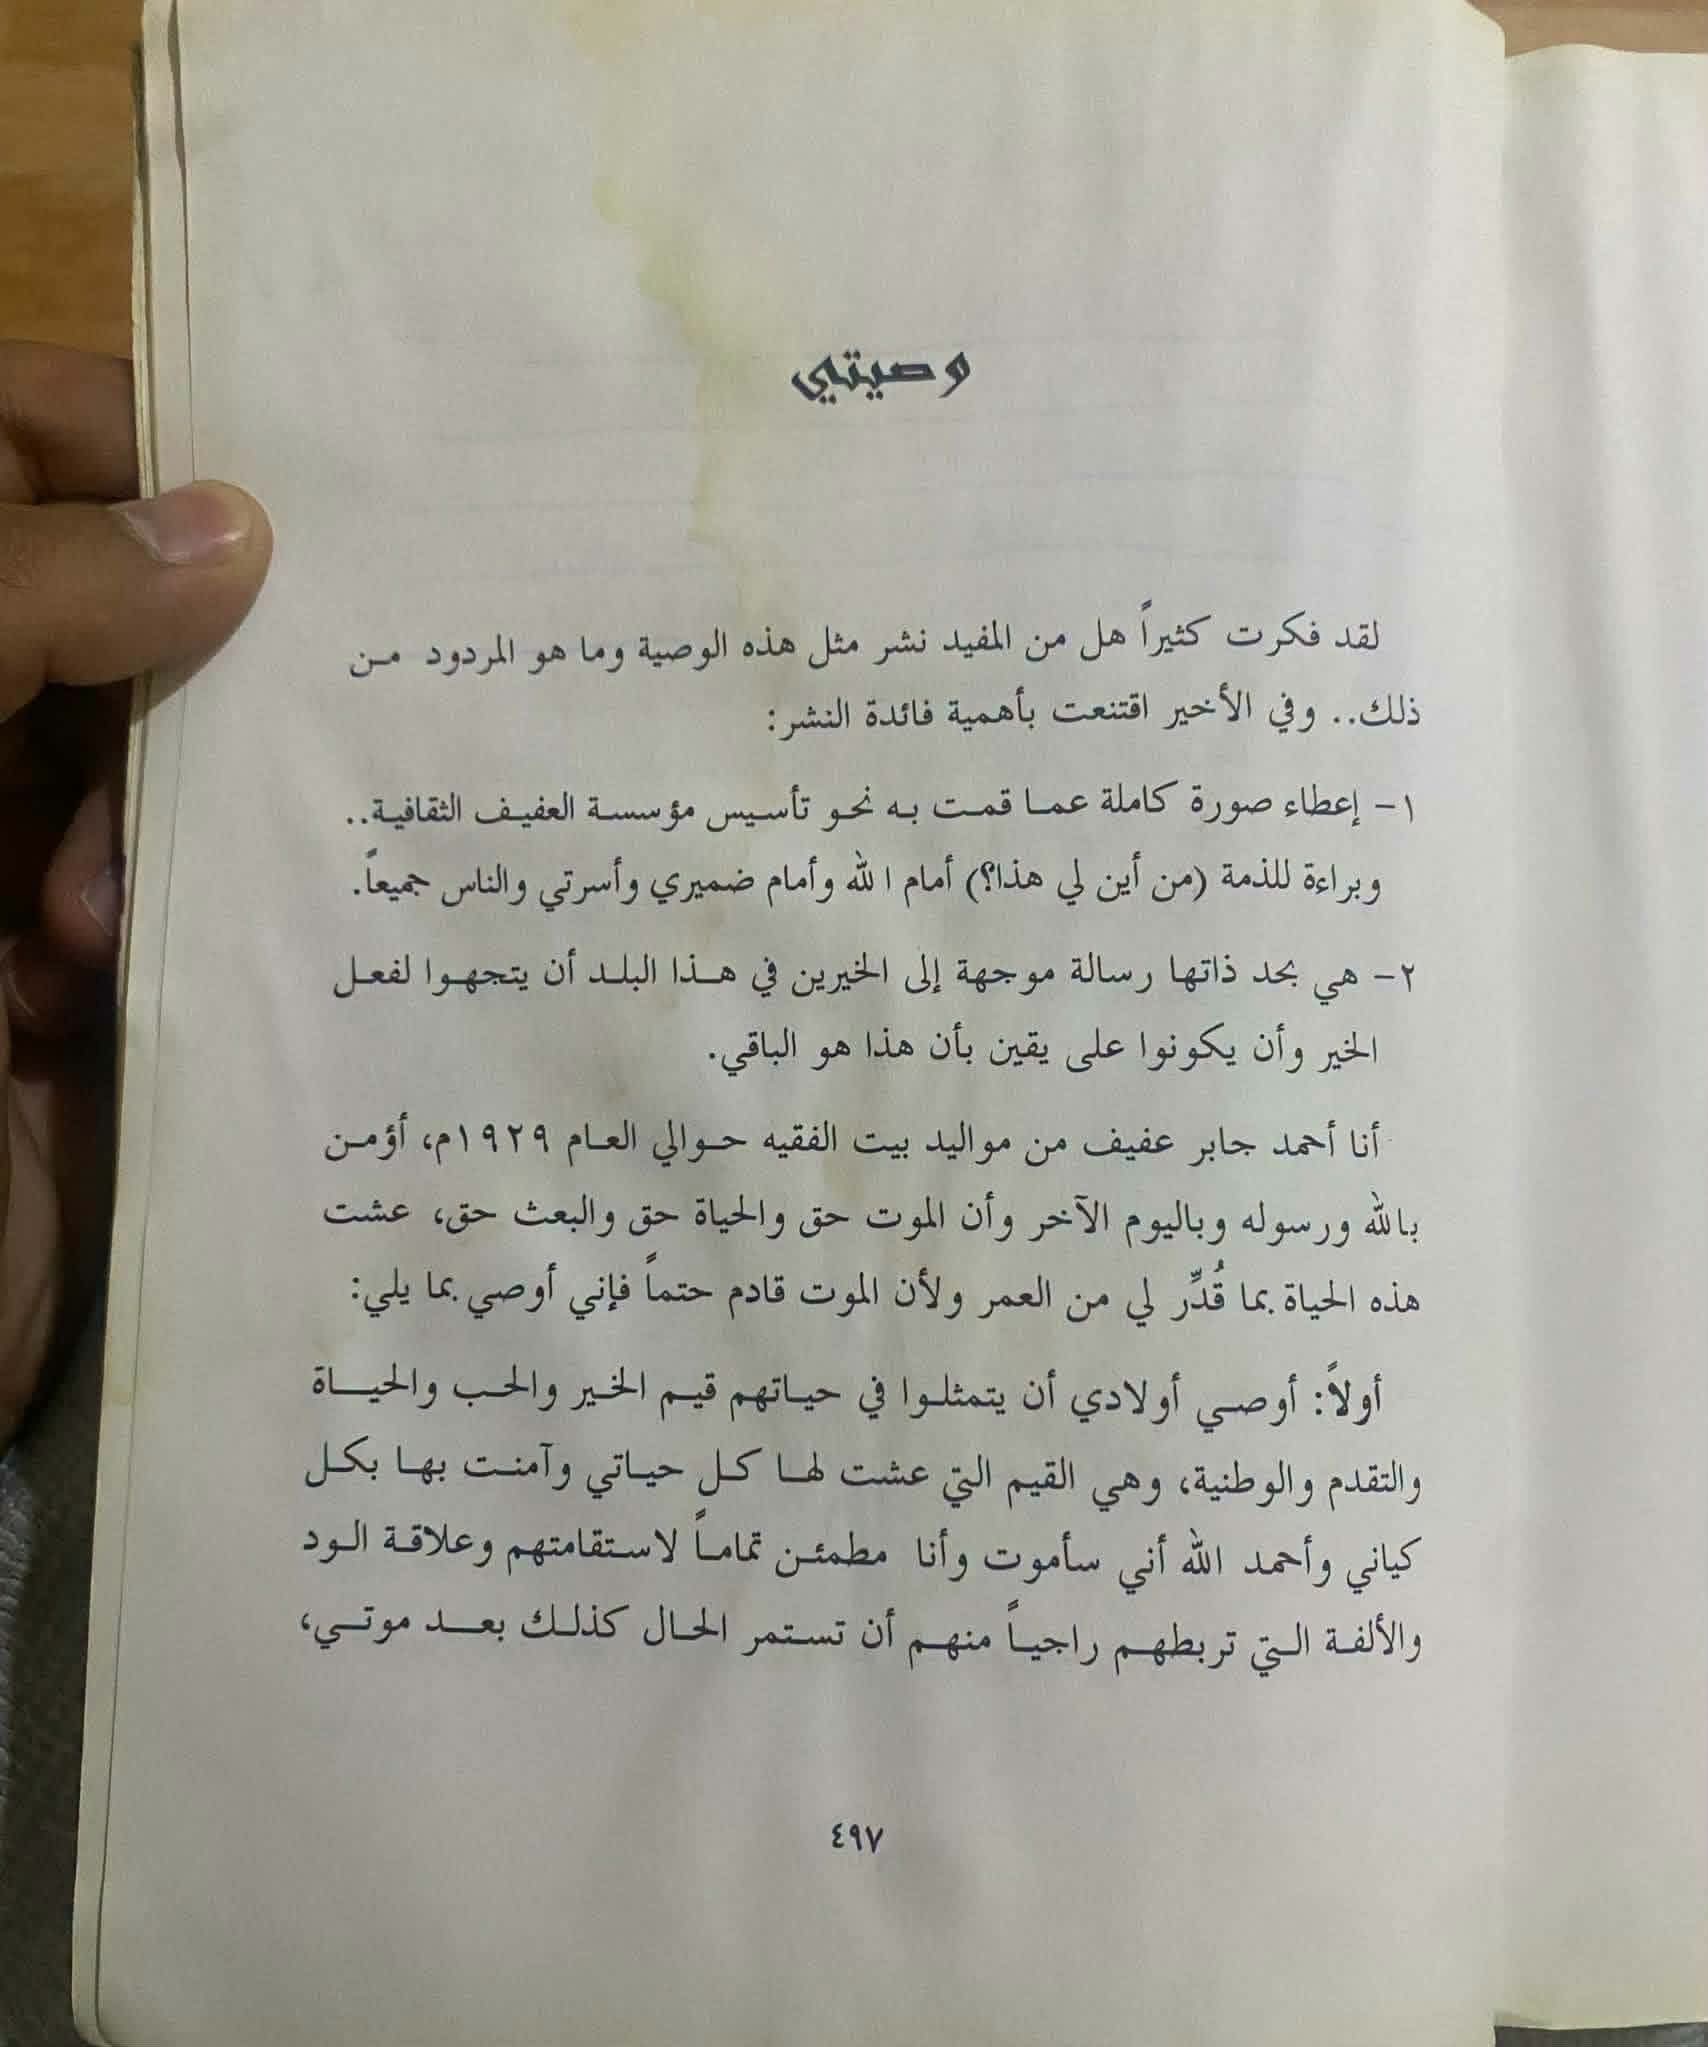 وصيتي
لقد فكرت كثيراً هل من المفيد نشر مثل هذه الوصية وما هو المردود من
ذلك.. وفي الأخير اقتنعت بأهمية فائدة النشر:
١- إعطاء صورة كاملة عما قمت به نحو تأسيس مؤسسة العفيف الثقافية..
وبراءة للذمة (من أين لي هذا؟) أمام الله وأمام ضميري وأسرتي والناس جميعاً.
٢- هي بحد ذاتها رسالة موجهة إلى الخيرين في هذا البلد أن يتجهوا لفعل
الخير وأن يكونوا على يقين بأن هذا هو الباقي.
أنا أحمد جابر عفيف من مواليد بيت الفقيه حوالي العام ١٩٢٩م، أؤمن
بالله ورسوله وباليوم الآخر وأن الموت حق والحياة حق والبعث حق، عشت
هذه الحياة بما قُدِّر لي من العمر ولأن الموت قادم حتماً فإني أوصي بما يلي:
أولاً: أوصي أولادي أن يتمثلوا في حياتهم قيم الخير والحب والحياة
والتقدم والوطنية، وهي القيم التي عشت لها كل حياتي وآمنت بها بكل
كياني وأحمد الله أني سأموت وأنا مطمئن تماماً لاستقامتهم وعلاقة الود
والألفة التي تربطهم راجياً منهم أن تستمر الحال كذلك بعد موتي،
٤٩٧